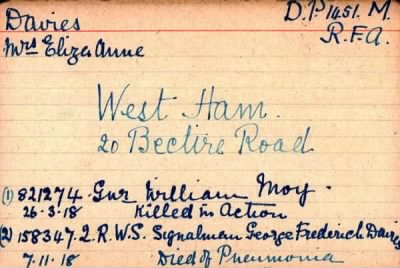 Davies D.P. 1451. M.
Mrs Eliza Anne R.F.A.
West Ham.
20 Bective Road
(1) 821274. Gnr William Moy.
26-3-18 Killed in Action
(2) 158347. 2.R.W.S. Signalman George Frederich Davies
7.11.18 Died of Pneumonia